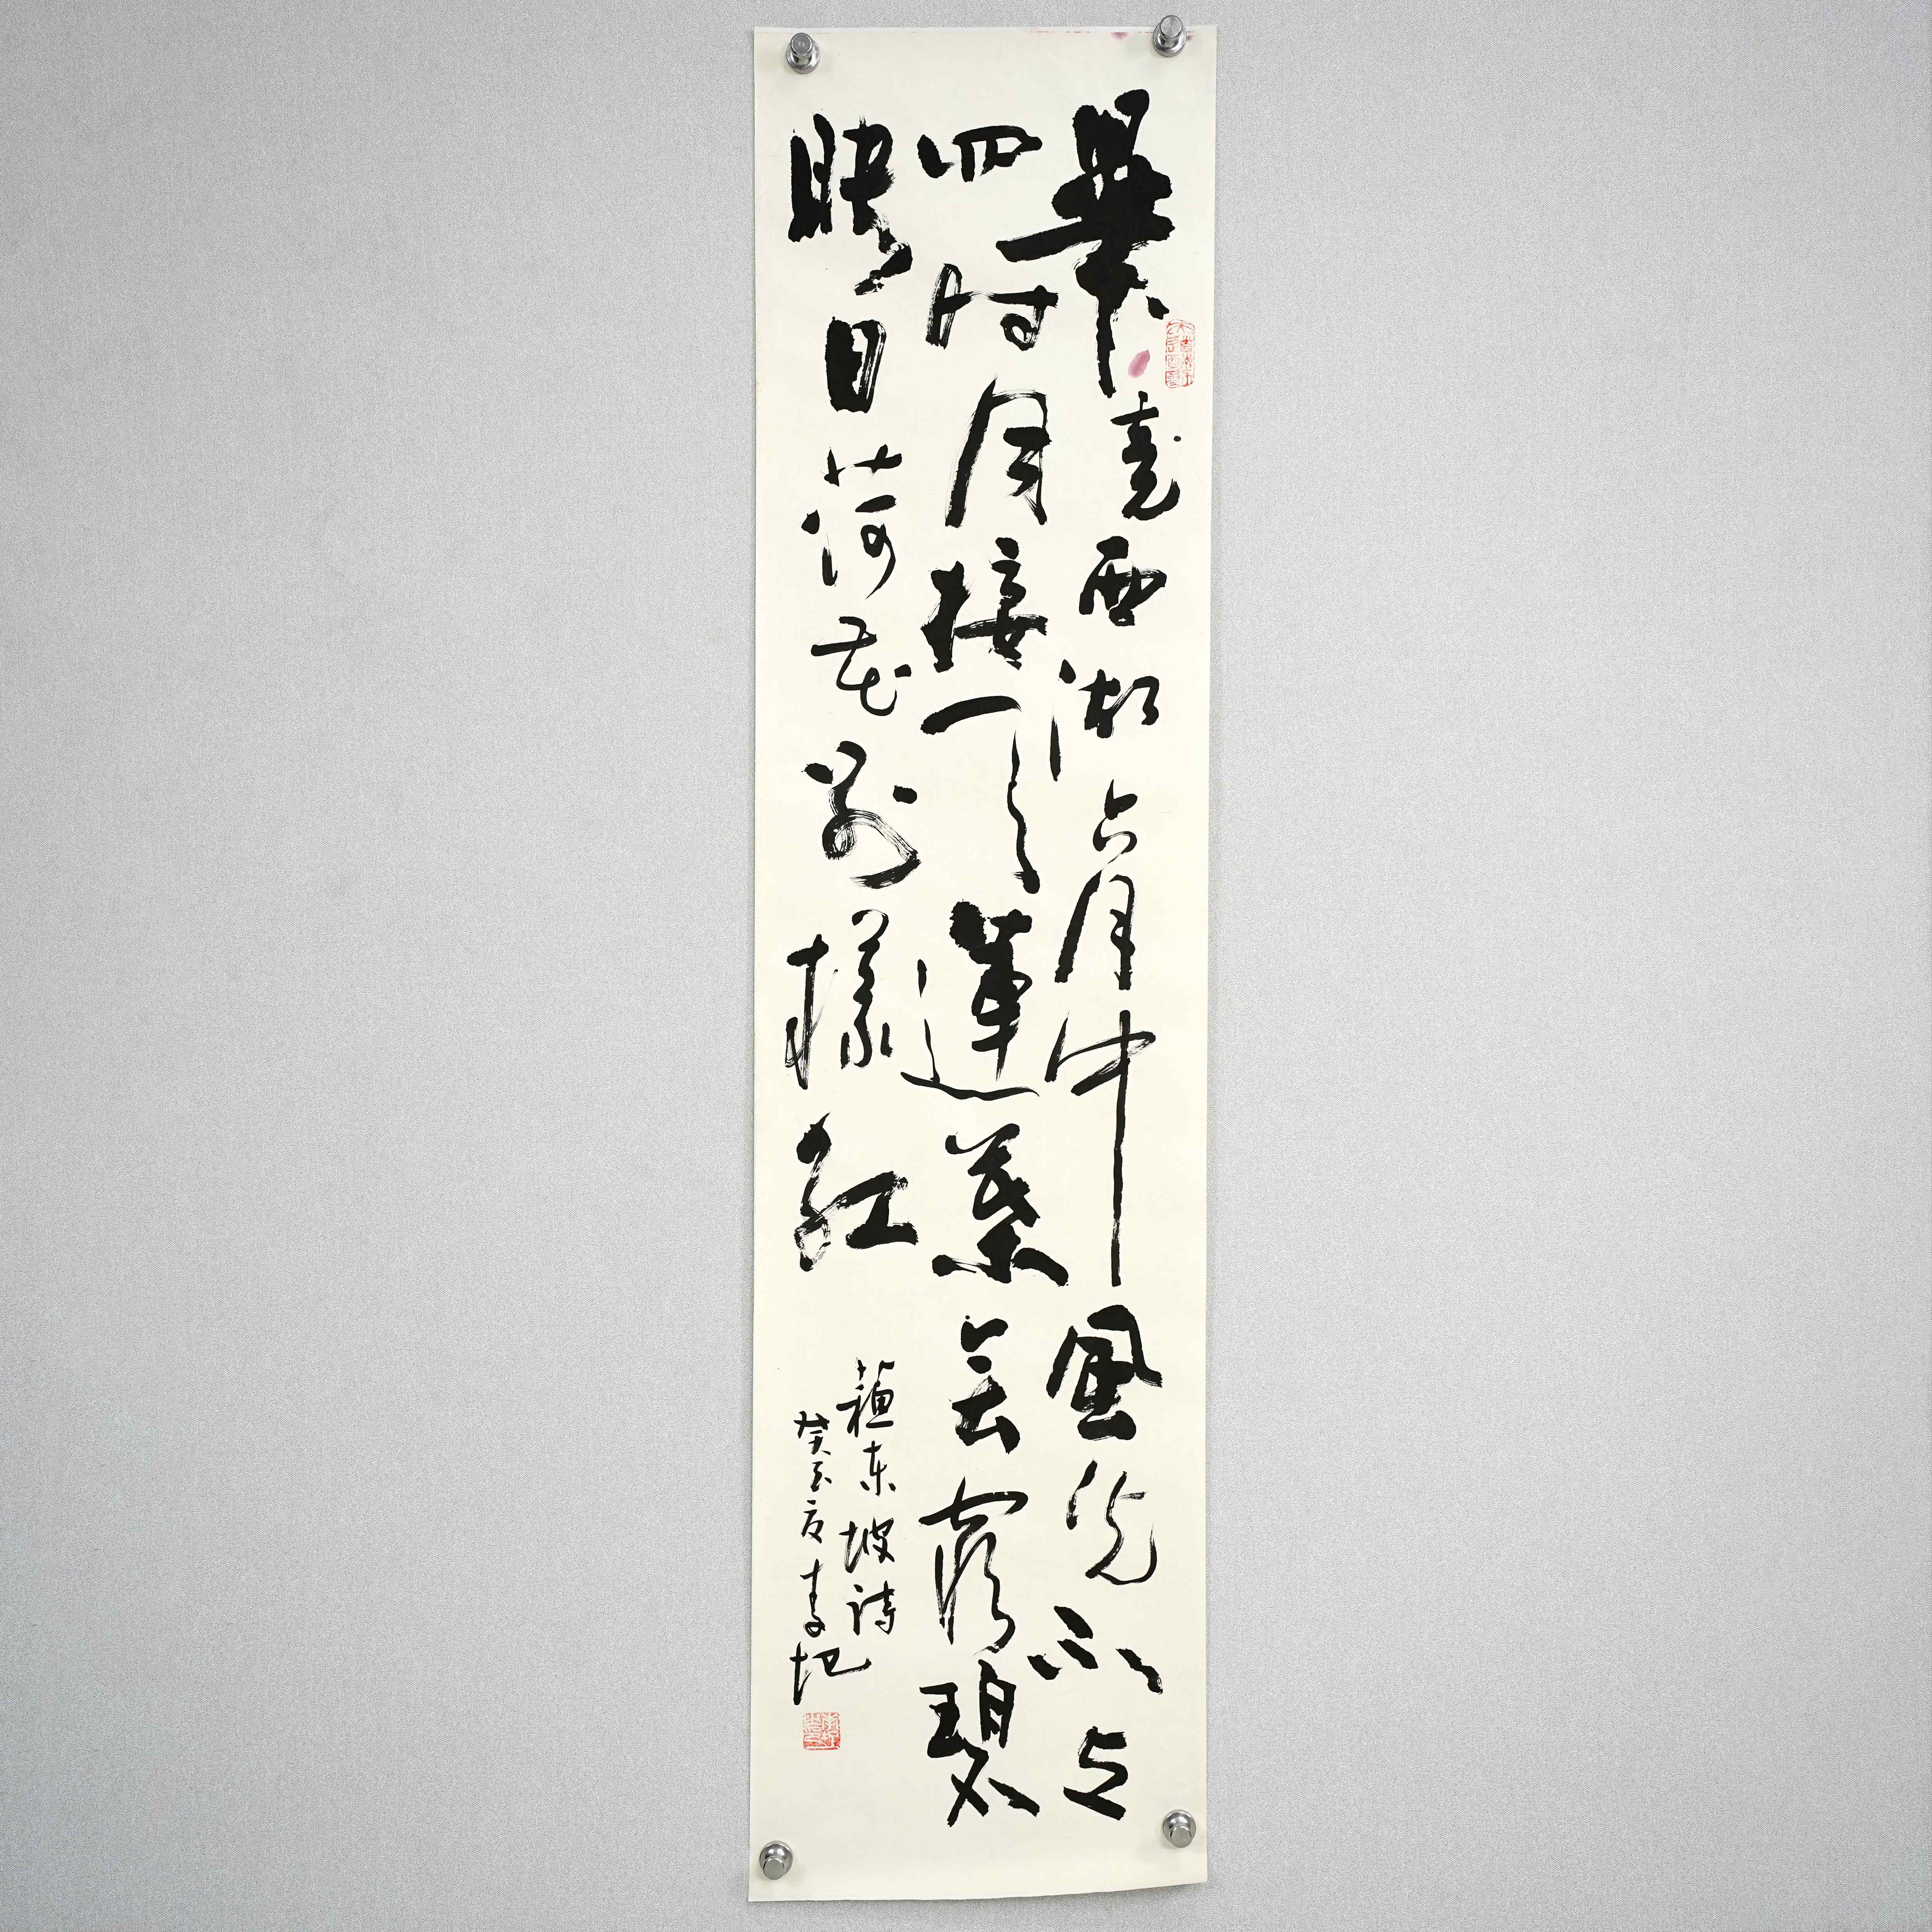 畢竟西湖六月中風光不与
四时同接天蓮葉無窮碧
映日荷花别樣紅
蘓東坡詩
癸亥夏李